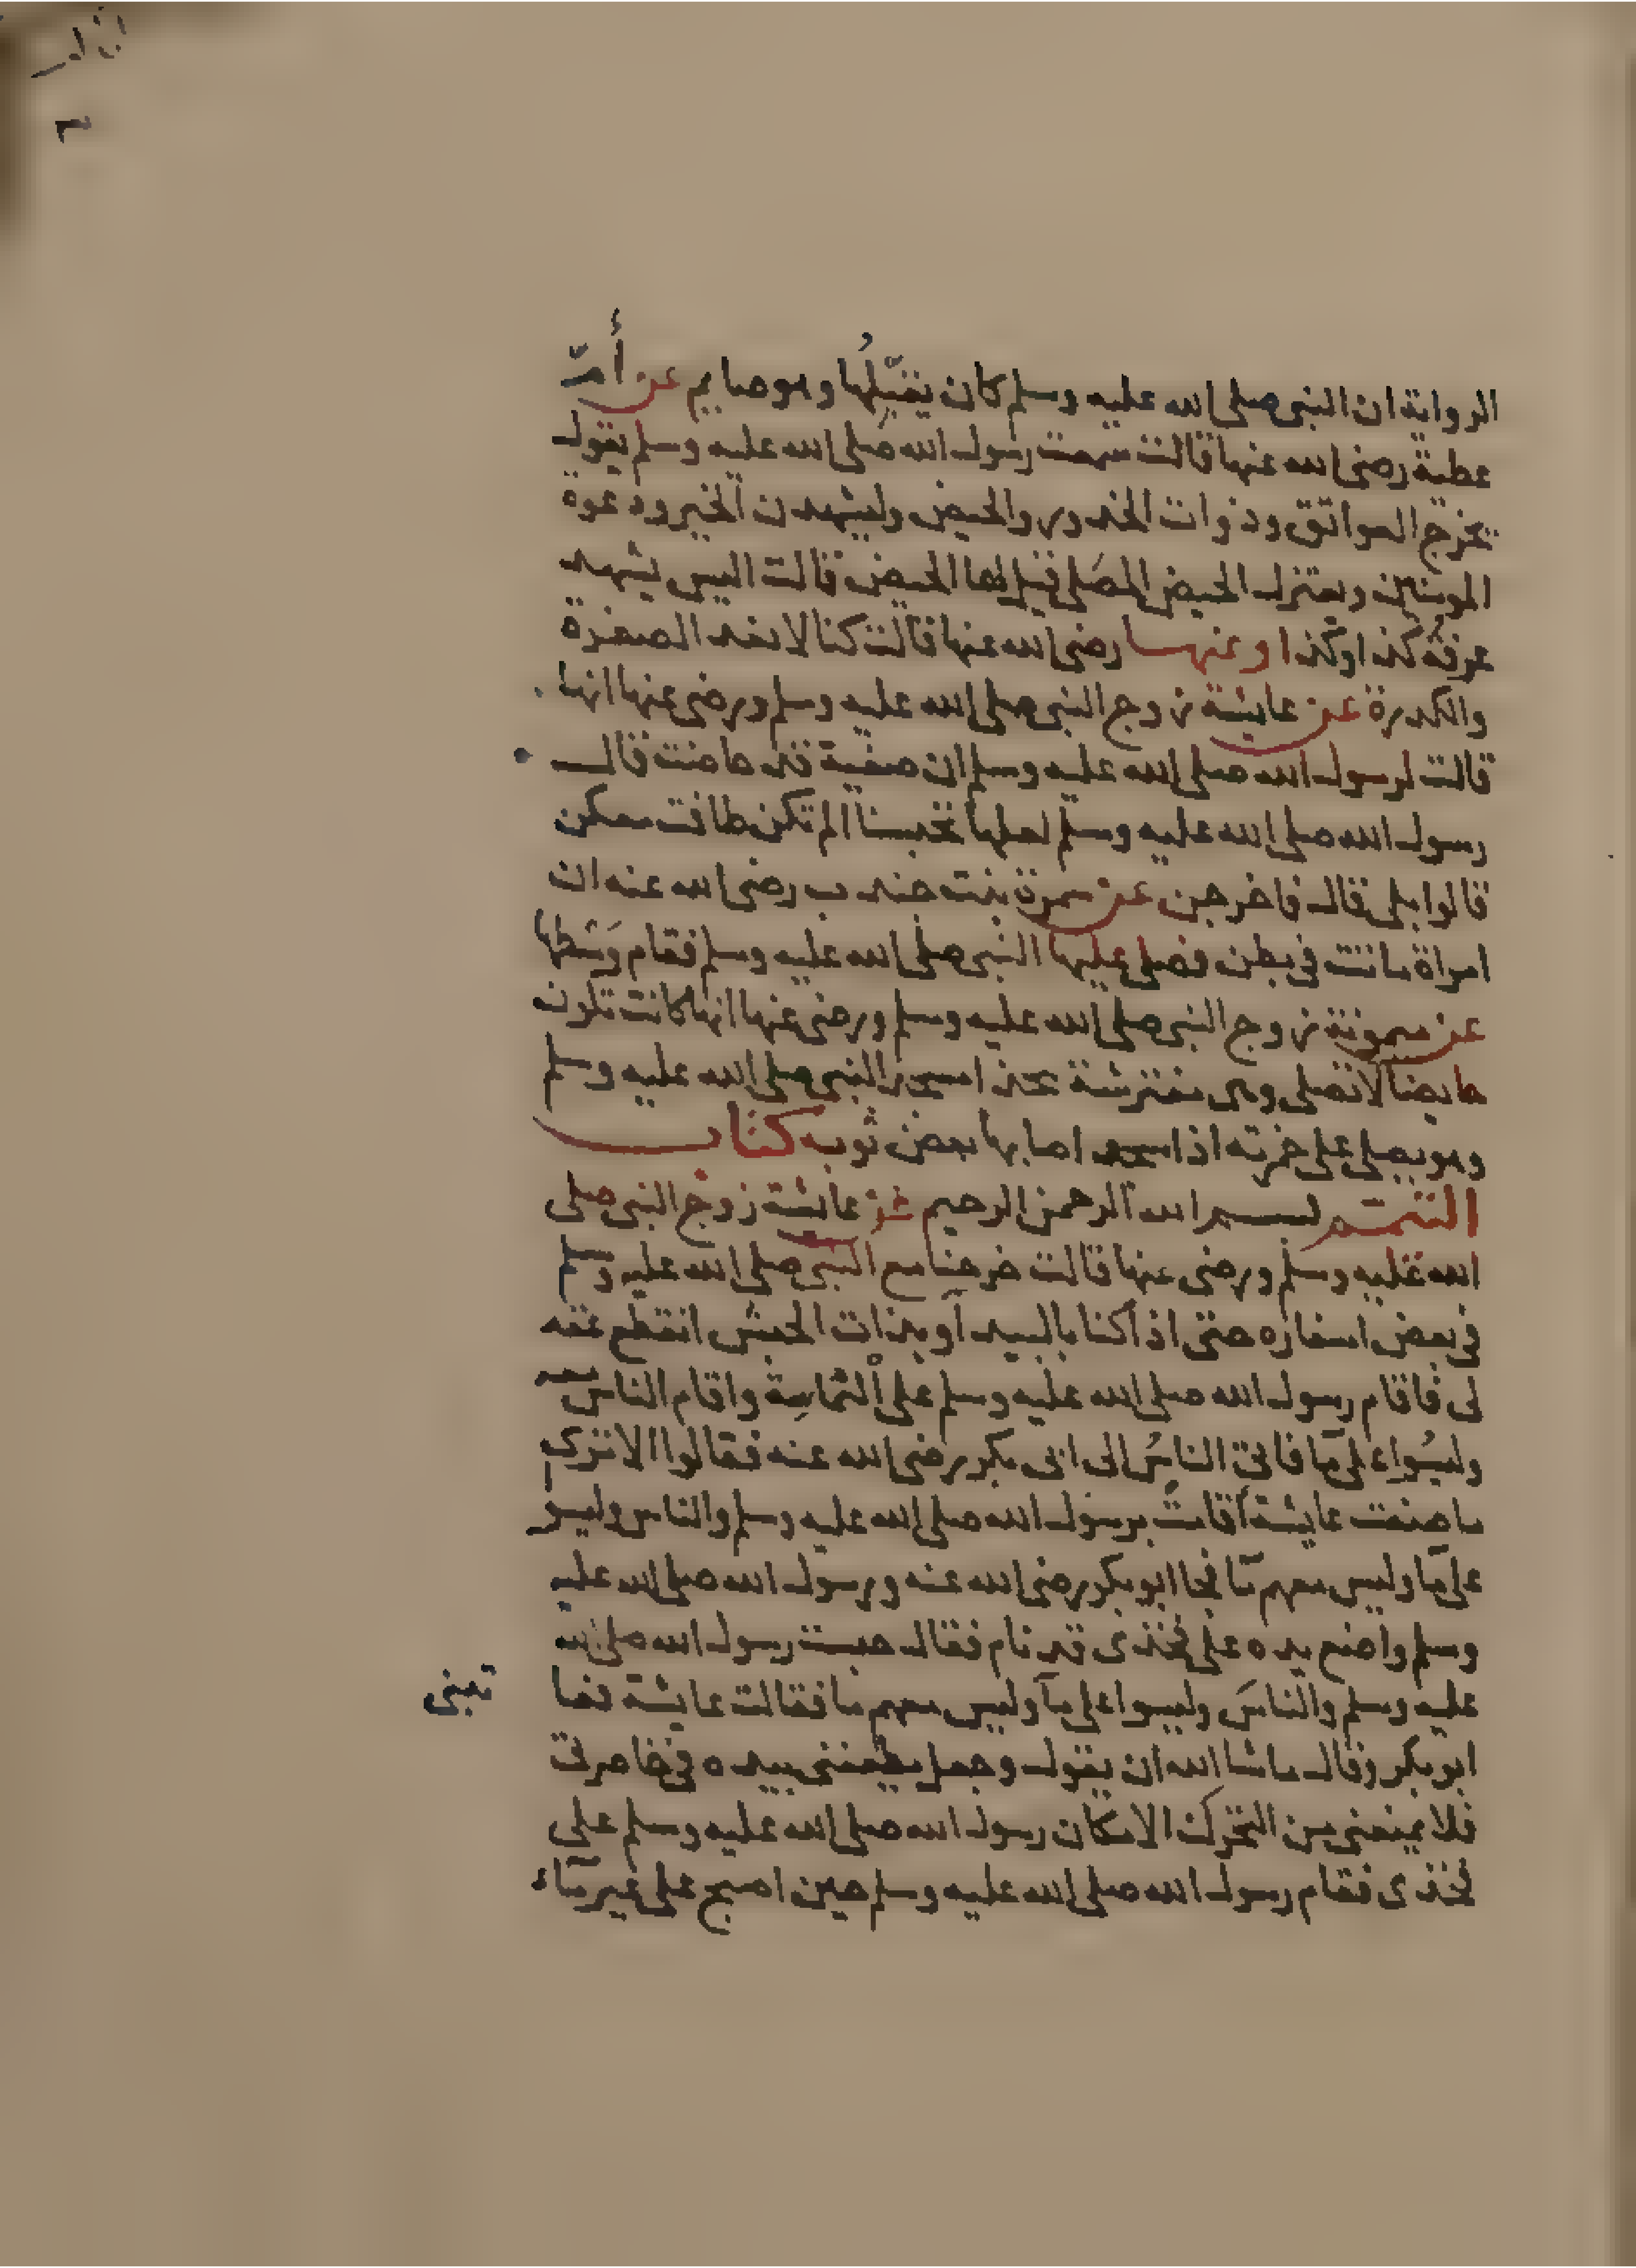 الرواية ان النبي صلى الله عليه وسلم كان يقبّلُها وهو صايم عن أمّ
عطية رضى الله عنها قالت سمعت رسول الله صلى الله عليه وسلم يقول
يخرج العواتق وذوات الخدور والحيض وليشهدن الخير ودعوة
المومنين ويعتزل الحيض المصَلى قيل لها الحيض قالت اليس يشهد
عرفة كذا وكذا وعنها رضى الله عنها قالت كنا لا نعد الصفرة
والكدرة عن عايشة زوج النبي صلى الله عليه وسلم ورضى عنها انها
قالت لرسول الله صلى الله عليه وسلم ان صفية قد حاضت قال
رسول الله صلى الله عليه وسلم لعلها تحبسنا الم تكن طافت معكن
قالوا بلى قال فاخرجن عن سمرة بنت جندب رضى الله عنه ان
امراة ماتت في بطن فصلى عليها النبي صلى الله عليه وسلم فقام وَسْطها
عن ميمونة زوج النبي صلى الله عليه وسلم ورضى عنها انها كانت تكون
حايضا لا تصلى وهى مفترشة بحذا مسجد النبي صلى الله عليه وسلم
وهو يصلى على خمرته اذا سجد اصابها بعض ثوبه كتاب
التيمم بسم الله الرحمن الرحيم عن عايشة زوج النبي صلى
الله عليه وسلم ورضى عنها قالت خرجنا مع النبي صلى الله عليه وسلم
في بعض اسفاره حتى اذا كنا بالبيدآ او بذات الجيش انقطع عقد
لى فاقام رسول الله صلى الله عليه وسلم على التماسِهِ واقام الناس معه
وليسُوا على مآ فاتى الناسُ الى ابى بكر رضى الله عنه فقالوا الا ترى
ما صنعت عايشة أقامتْ برسول الله صلى الله عليه وسلم والناس وليسو
على مآ وليس معهم مآ فجا ابو بكر رضى الله عنه ورسول الله صلى الله عليه
وسلم واضع يده على فخذى قد نام فقال حبست رسول الله صلى الله
عليه وسلم والناسَ وليسوا على مآ وليس معهم ما فقالت عايشة فعا
تبنى
ابو بكر وقال ما شا الله ان يقول وجعل يطعننى بيده في خاصرتى
فلا يمنعنى من التحرك الا مكان رسول الله صلى الله عليه وسلم على
فخذى فقام رسول الله صلى الله عليه وسلم حين اصبح على غير مآء